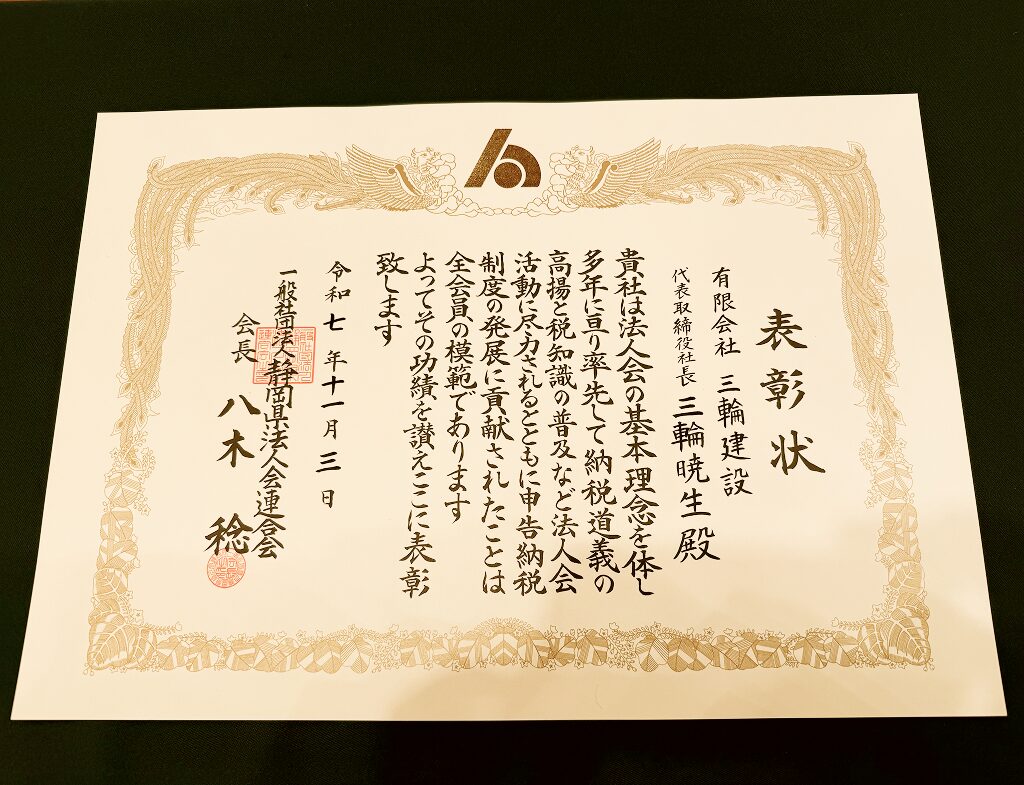 表彰状
有限会社 三輪建設
代表取締役社長 三輪暁生殿
貴社は法人会の基本理念を体し
多年に亘り率先して納税道義の
高揚と税知識の普及など法人会
活動に尽力されるとともに申告納税
制度の発展に貢献されたことは
全会員の模範であります
よってその功績を讃えここに表彰
致します
令和七年十一月三日
一般社団法人静岡県法人会連合会
会長 八木 稔